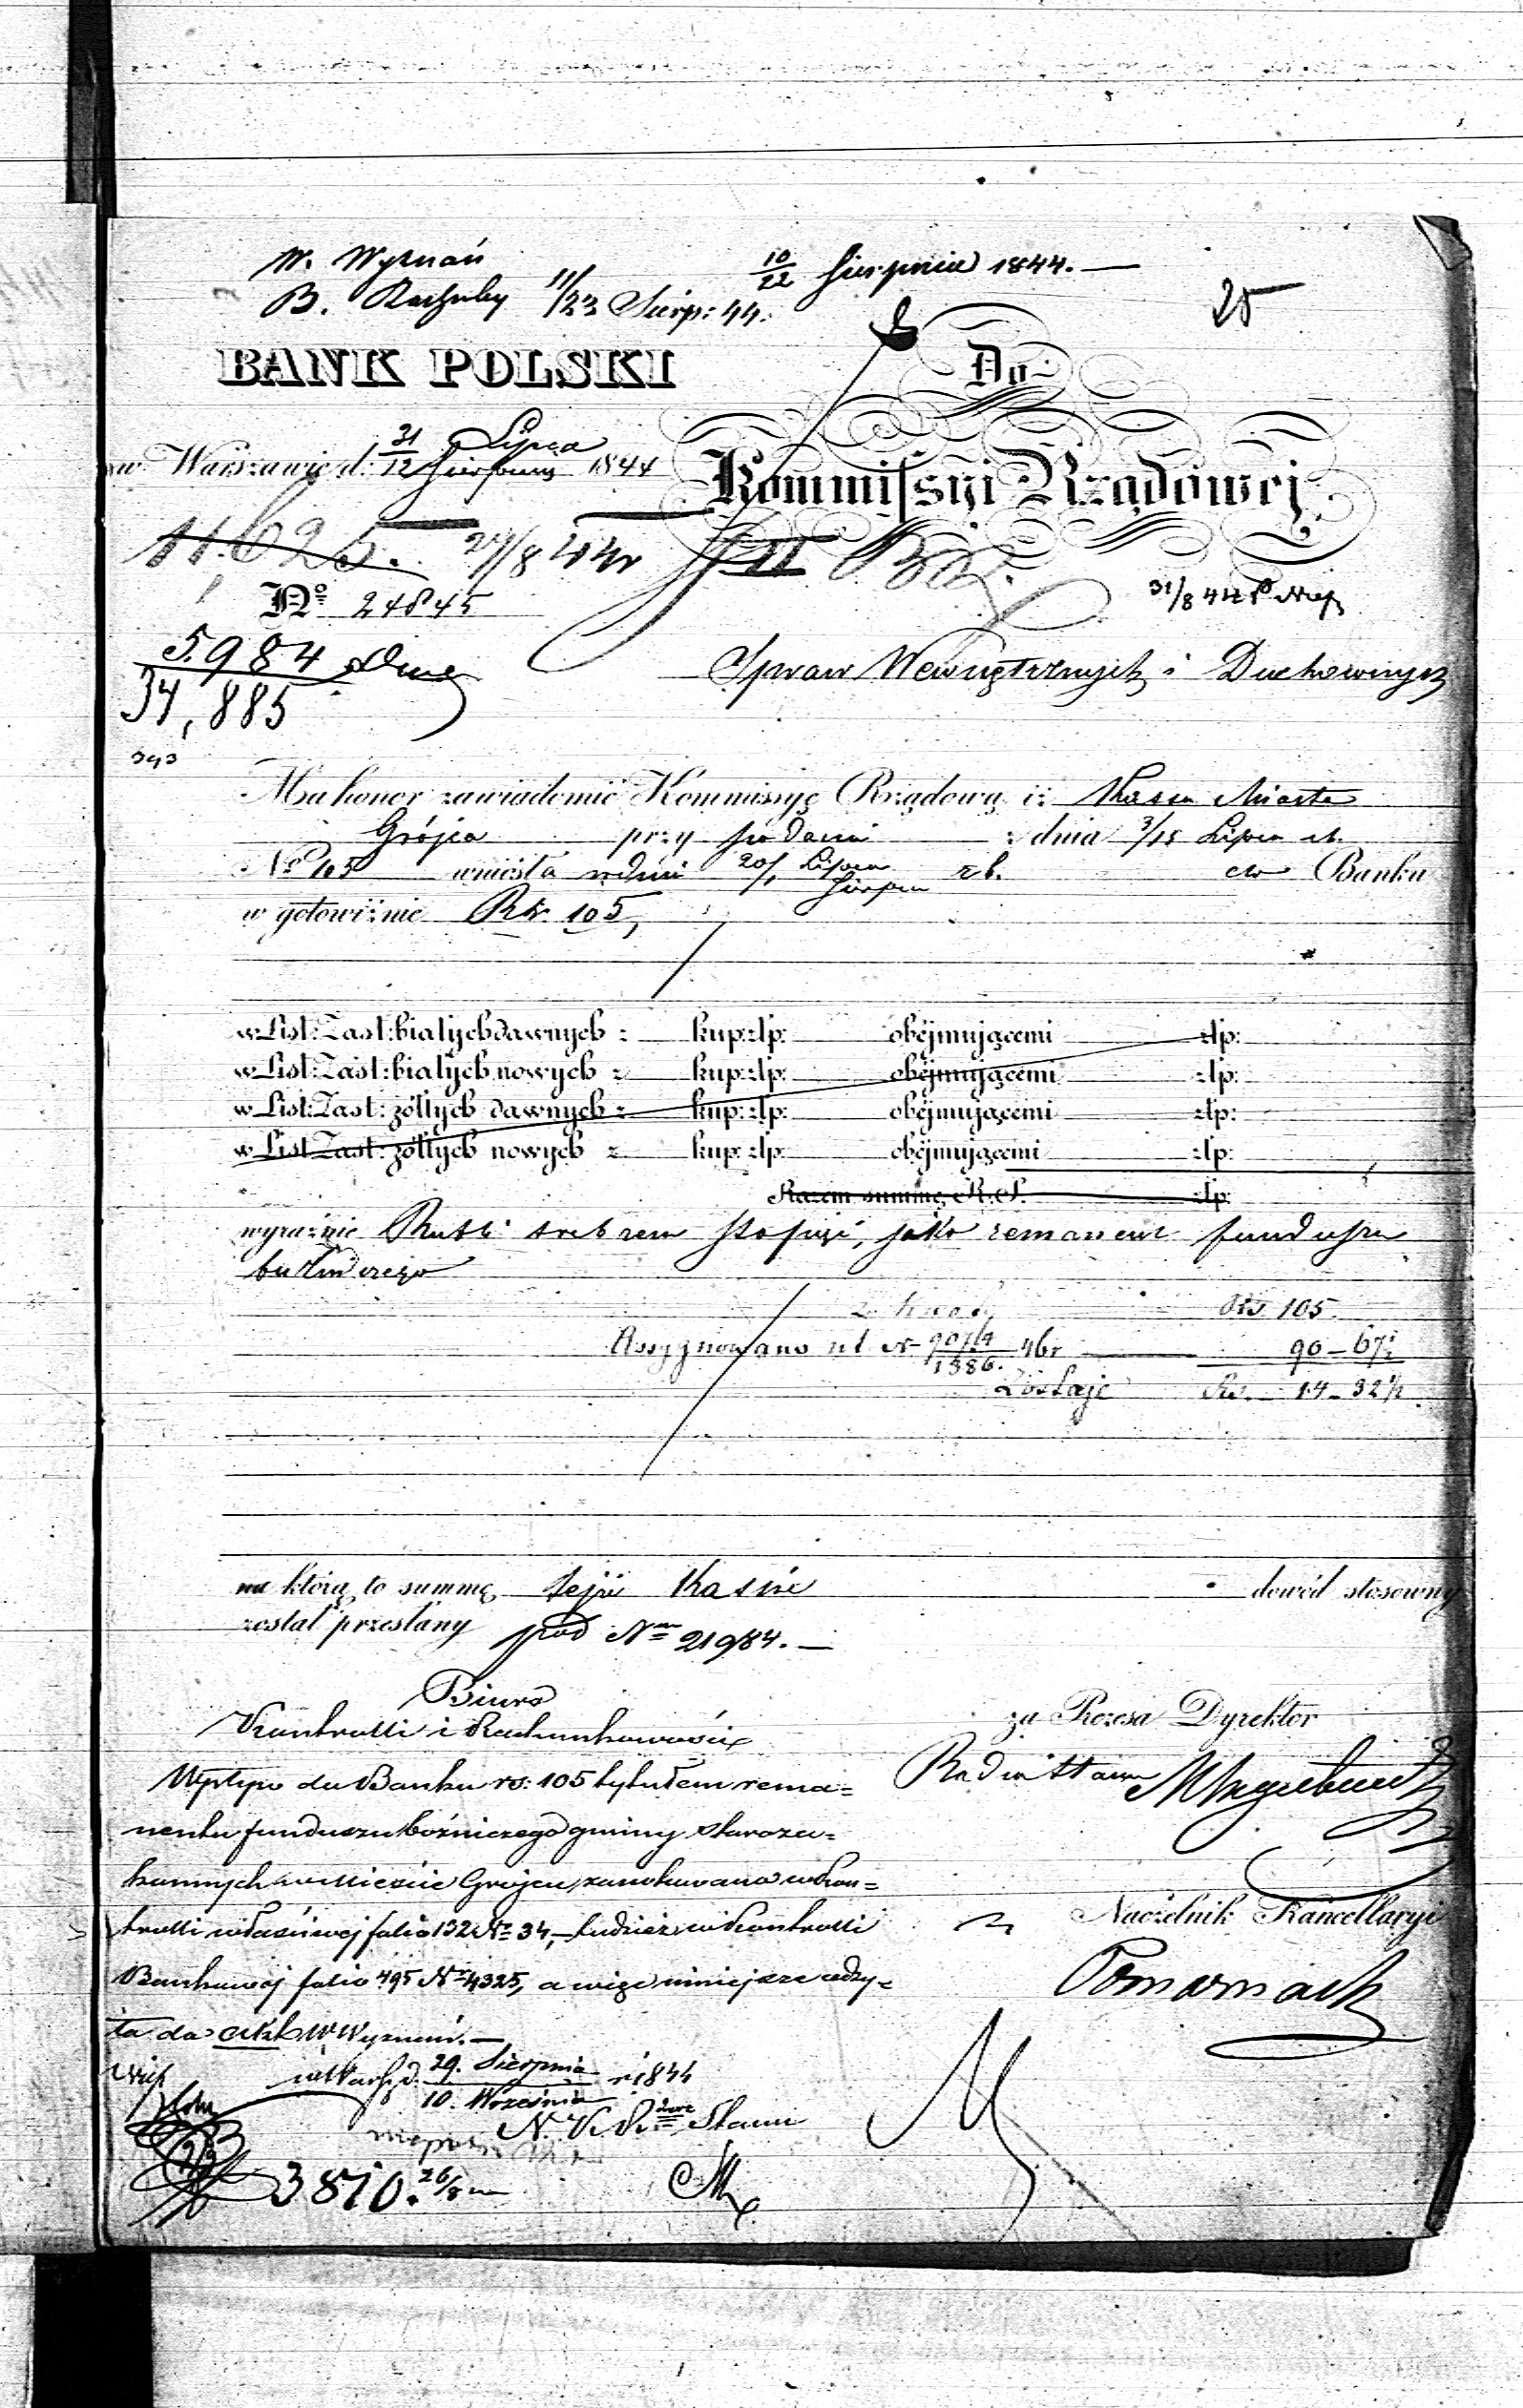 W. Wyznań
B. Rachuby 11/23 Sierp: 44.
10/22 Sierpnia 1844. —
25
BANK POLSKI
Do
w Warszawie d. 31 Lipca / 12 Sierpnia 1844
Kommissyi Rządowej
11.625. 27/8 44r
31/8 44
No 24845
5.984
34,885
Spraw Wewnętrznych i Duchownych
Ma honor zawiadomić Kommissyę Rządową iż Kassa Miasta
Grójca przy podaniu z dnia 3/15 Lipca rb.
No 105 wniosła w dniu 20/1 Lipca / Sierpnia rb. do Banku
w gotowiźnie Rs. 105,
w List: Zast: białych dawnych z kup: złp: obejmującemi złp:
w List: Zast: białych nowych z kup: złp: obejmującemi złp:
w List: Zast: żółtych dawnych z kup: złp: obejmującemi złp:
w List: Zast: żółtych nowych z kup: złp: obejmującemi złp:
Razem summę R. S. złp:
wyraźnie Rubli srebrem sto pięć, jako remanent funduszu
bużniczego
Rs 105.
Assygnowano 90 – 67½
Zostaje Rs. 14 – 32½
na którą to summę tejże Kassie dowód stosowny
został przesłany pod Nrm 21984. —
Biuro
Kontrolli i Rachunkowości
za Prezesa Dyrektor
Wpływ do Banku rs: 105 tytułem rema=
Radca Stanu
nentu funduszu bóżniczego gminy starozа=
konnych w Mieście Grójcu, zanotowano w Kon=
trolli właściwej folio 132 No 34, – tudzież w Kontrolli
Naczelnik Kancellaryi
Bankowej folio 495 No 4325, a więc niniejsze odzy=
ta do akt W Wyznań. —
w Warsz. d. 29. Sierpnia / 10. Września r 1844
N. K. Stanu
3870. 26/8